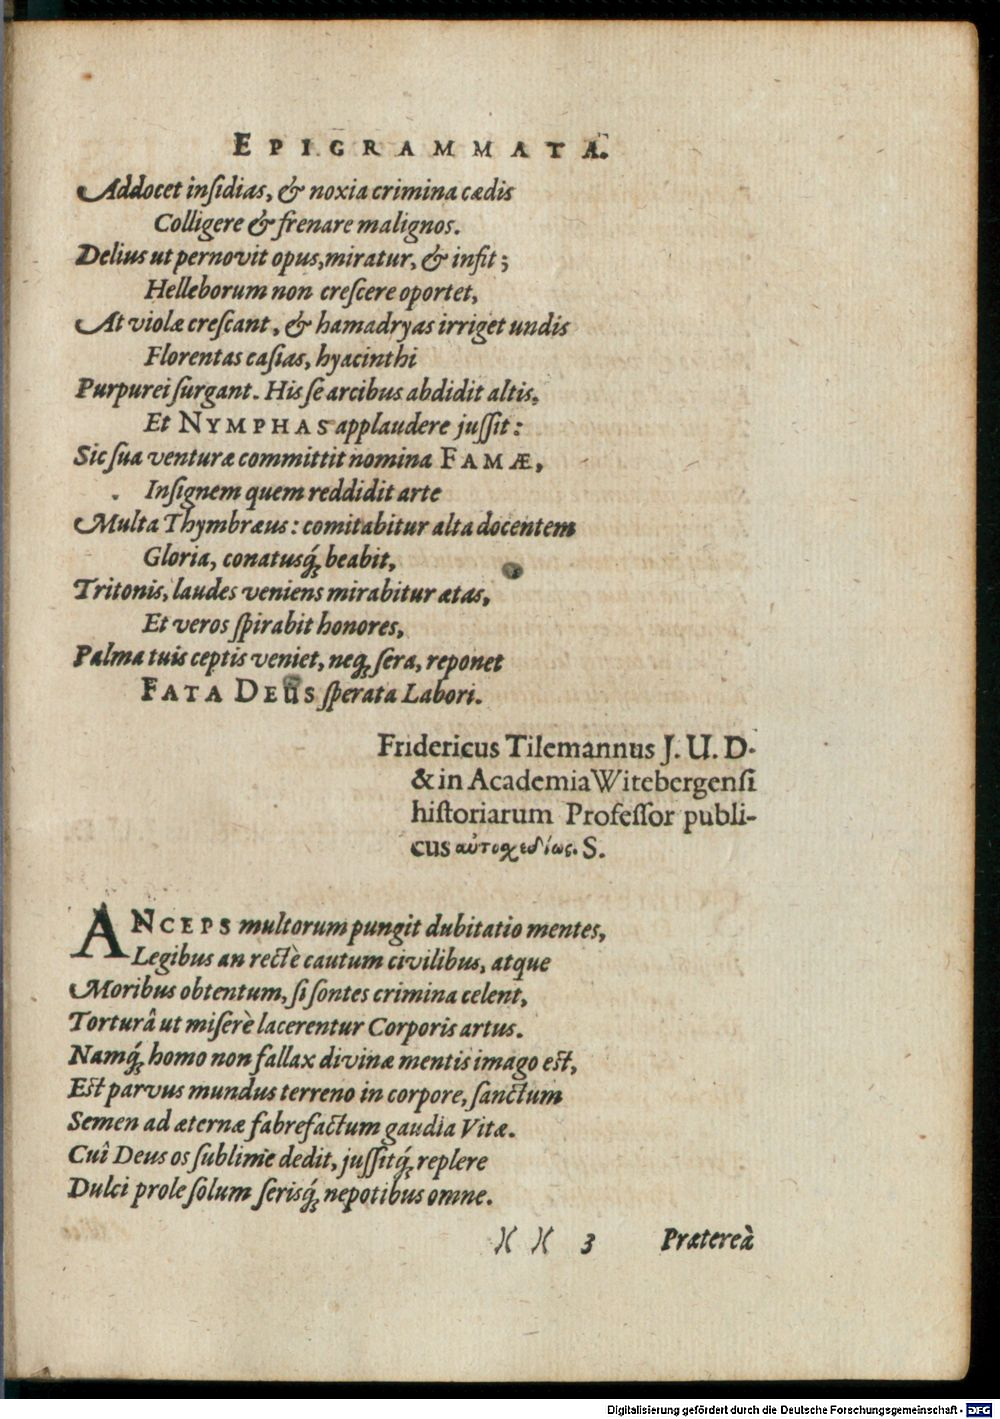 EPIGRAMMATA.
Addocet insidias, & noxia crimina cædis
Colligere & frenare malignos.
Delius ut pernovit opus, miratur, & infit;
Helleborum non crescere oportet,
At violæ crescant, & hamadryas irriget undis
Florentas casias, hyacinthi
Purpurei surgant. His se arcibus abdidit altis.
Et NYMPHAS applaudere jussit:
Sic sua venturæ committit nomina FAMÆ,
Insignem quem reddidit arte
Multa Thymbræus: comitabitur alta docentem
Gloria, conatusq́ꝫ beabit,
Tritonis, laudes veniens mirabitur ætas,
Et veros spirabit honores,
Palma tuis ceptis veniet, neqꝫ sera, reponet
FATA DEUS sperata Labori.
Fridericus Tilemannus J. U. D.
& in Academia Witebergensi
historiarum Professor publi-
cus αὐτοχεδίως. S.
ANCEPS multorum pungit dubitatio mentes,
Legibus an rectè cautum civilibus, atque
Moribus obtentum, si sontes crimina celent,
Torturâ ut miserè lacerentur Corporis artus.
Namq́ꝫ homo non fallax divinæ mentis imago est,
Est parvus mundus terreno in corpore, sanctum
Semen ad æternæ fabrefactum gaudia Vitæ.
Cui Deus os sublime dedit, jussitq́ꝫ replere
Dulci prole solum serisq́ꝫ nepotibus omne.
)( )( 3 Prætereà
Digitalisierung gefördert durch die Deutsche Forschungsgemeinschaft - DFG